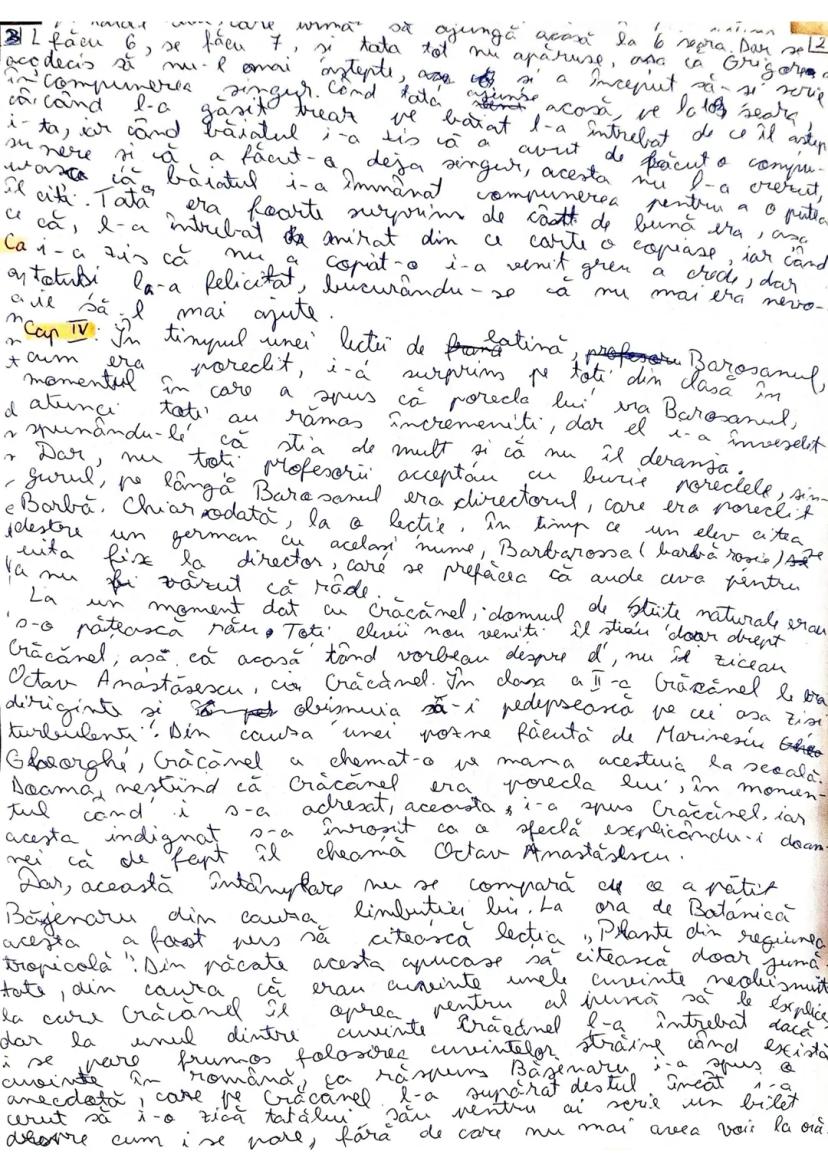 care urma să ajungă acasă la 6 seara. Dar se
făcu 6, se făcu 7, și tata tot nu apăruse, așa că Grigore
a decis să nu-l mai aștepte, și a început să-și scrie
compunerea singur. Când tata ajunse acasă, pe la 10 seara,
când l-a găsit treaz pe băiat l-a întrebat de ce îl aștep
ta, iar când băiatul i-a zis că a avut de făcut o compu-
nere și că a făcut-o deja singur, acesta nu l-a crezut,
așa că băiatul i-a înmânat compunerea pentru a o putea
citi. Tata era foarte surprins de cât de bună era, așa
că, l-a întrebat mirat din ce carte o copiase, iar când
i-a zis că nu a copiat-o i-a venit greu a crede, dar
totuși l-a felicitat, bucurându-se că nu mai era nevo-
ie să-l mai ajute.
Cap IV: În timpul unei lecții de latină, Barosanul,
cum era poreclit, i-a surprins pe toți din clasă în
momentul în care a spus că porecla lui era Barosanul,
atunci toți au rămas încremeniți, dar el i-a înveselit
spunându-le că știa de mult și că nu îl deranja.
Dar, nu toți profesorii acceptau cu bucurie poreclele, sin-
gurul, pe lângă Barosanul era directorul, care era poreclit
Barbă. Chiar odată, la o lecție, în timp ce un elev citea
despre un german cu același nume, Barbarossa (barbă roșie) se
uita fix la director, care se prefăcea că aude ceva pentru
a nu fi văzut că râde.
La un moment dat cu Crăcănel, domnul de științe naturale erau
s-o pățească rău. Toți elevii nou veniți îl știau doar drept
Crăcănel, așa că acasă când vorbeau despre el, nu îi ziceau
Octav Anastăsescu, ci Crăcănel. În clasa a II-a Crăcănel le era
diriginte și obișnuia să-i pedepsească pe cei așa ziși
"turbulenți". Din cauza unei pozne făcută de Marinescu
Gheorghe, Crăcănel a chemat-o pe mama acestuia la școală.
Doamna, neștiind că Crăcănel era porecla lui, în momen-
tul când i s-a adresat, aceasta i-a spus Crăcănel, iar
acesta indignat s-a înroșit ca o sfeclă explicându-i doam
nei că de fapt îl cheamă Octav Anastăsescu.
Dar, această întâmplare nu se compară cu ce a pățit
Băjenaru din cauza limbuției lui. La ora de Botanică
acesta a fost pus să citească lecția „Plante din regiunea
tropicală". Din păcate acesta apucase să citească doar jumă
tate, din cauza că erau cuvinte unele cuvinte neobișnuit
la care Crăcănel îl oprea pentru al pune să le explice
dar la unul dintre cuvinte Crăcănel l-a întrebat dacă
i se pare frumos folosirea cuvintelor străine când există
cuvinte în română, ca răspuns Băjenaru i-a spus o
anecdotă, care pe Crăcănel l-a supărat destul încât i-a
cerut să i-o zică tatălui său pentru ai scrie un bilet
despre cum i se pare, fără de care nu mai avea voie la oră